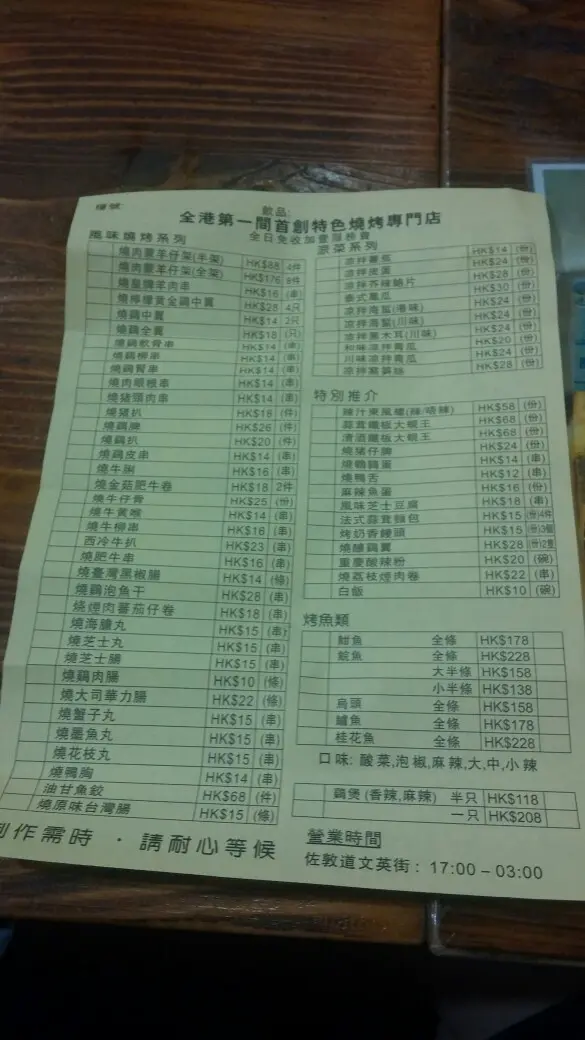 檯號:
飲品:
全港第一間首創特色燒烤專門店
全日免收加壹服務費
風味燒烤系列
燒肉蒙羊仔架(半架) HK$88 4件
燒肉蒙羊仔架(全架) HK$176 8件
燒皇牌羊肉串 HK$16 (串)
燒檸檬黃金鷄中翼 HK$28 4只
燒鷄中翼 HK$14 2只
燒鷄全翼 HK$18 (只)
燒鷄軟骨串 HK$14 (串)
燒鷄柳串 HK$14 (串)
燒鷄腎串 HK$14 (串)
燒肉眼根串 HK$14 (串)
燒豬頸肉串 HK$14 (串)
燒豬扒 HK$18 (件)
燒鷄髀 HK$26 (件)
燒鷄扒 HK$20 (件)
燒鷄皮串 HK$14 (串)
燒牛脷 HK$16 (串)
燒金菇肥牛卷 HK$18 2件
燒牛仔骨 HK$25 (份)
燒牛黃喉 HK$14 (串)
燒牛柳串 HK$16 (串)
西冷牛扒 HK$23 (串)
燒肥牛串 HK$16 (串)
燒臺灣黑椒腸 HK$14 (條)
燒鷄泡魚干 HK$28 (串)
燒煙肉蕃茄仔卷 HK$18 (串)
燒海膽丸 HK$15 (串)
燒芝士丸 HK$15 (串)
燒芝士腸 HK$15 (串)
燒鷄肉腸 HK$10 (條)
燒大司華力腸 HK$22 (條)
燒蟹子丸 HK$15 (串)
燒墨魚丸 HK$15 (串)
燒花枝丸 HK$15 (串)
燒鴨胸 HK$14 (串)
油甘魚鮫 HK$68 (件)
燒原味台灣腸 HK$15 (條)
制作需時 · 請耐心等候
涼菜系列
HK$14 (份)
涼拌皮蛋 HK$24 (份)
HK$28 (份)
泰式鳳爪 HK$30 (份)
涼拌海蜇(港味) HK$24 (份)
涼拌海蜇(川味) HK$24 (份)
涼拌黑木耳(川味) HK$24 (份)
和味涼拌青瓜 HK$20 (份)
川味涼拌青瓜 HK$24 (份)
涼拌萵筍絲 HK$28 (份)
特別推介
辣汁東風螺(辣/唔辣) HK$58 (份)
蒜茸鐵板大蜆王 HK$68 (份)
清酒鐵板大蜆王 HK$68 (份)
燒豬仔脾 HK$24 (份)
燒鵪鶉蛋 HK$14 (串)
燒鴨舌 HK$12 (串)
麻辣魚蛋 HK$16 (份)
風味芝士豆腐 HK$18 (串)
法式蒜茸麵包 HK$15 (份)4件
烤奶香饅頭 HK$15 (份)3個
燒釀鷄翼 HK$28 (份)2隻
重慶酸辣粉 HK$20 (碗)
燒荔枝煙肉卷 HK$22 (串)
白飯 HK$10 (碗)
烤魚類
鉗魚 全條 HK$178
鯇魚 全條 HK$228
大半條 HK$158
小半條 HK$138
烏頭 全條 HK$158
鱸魚 全條 HK$178
桂花魚 全條 HK$228
口味: 酸菜,泡椒,麻辣,大,中,小辣
鷄煲 (香辣,麻辣) 半只 HK$118
一只 HK$208
營業時間
佐敦道文英街 : 17:00 – 03:00